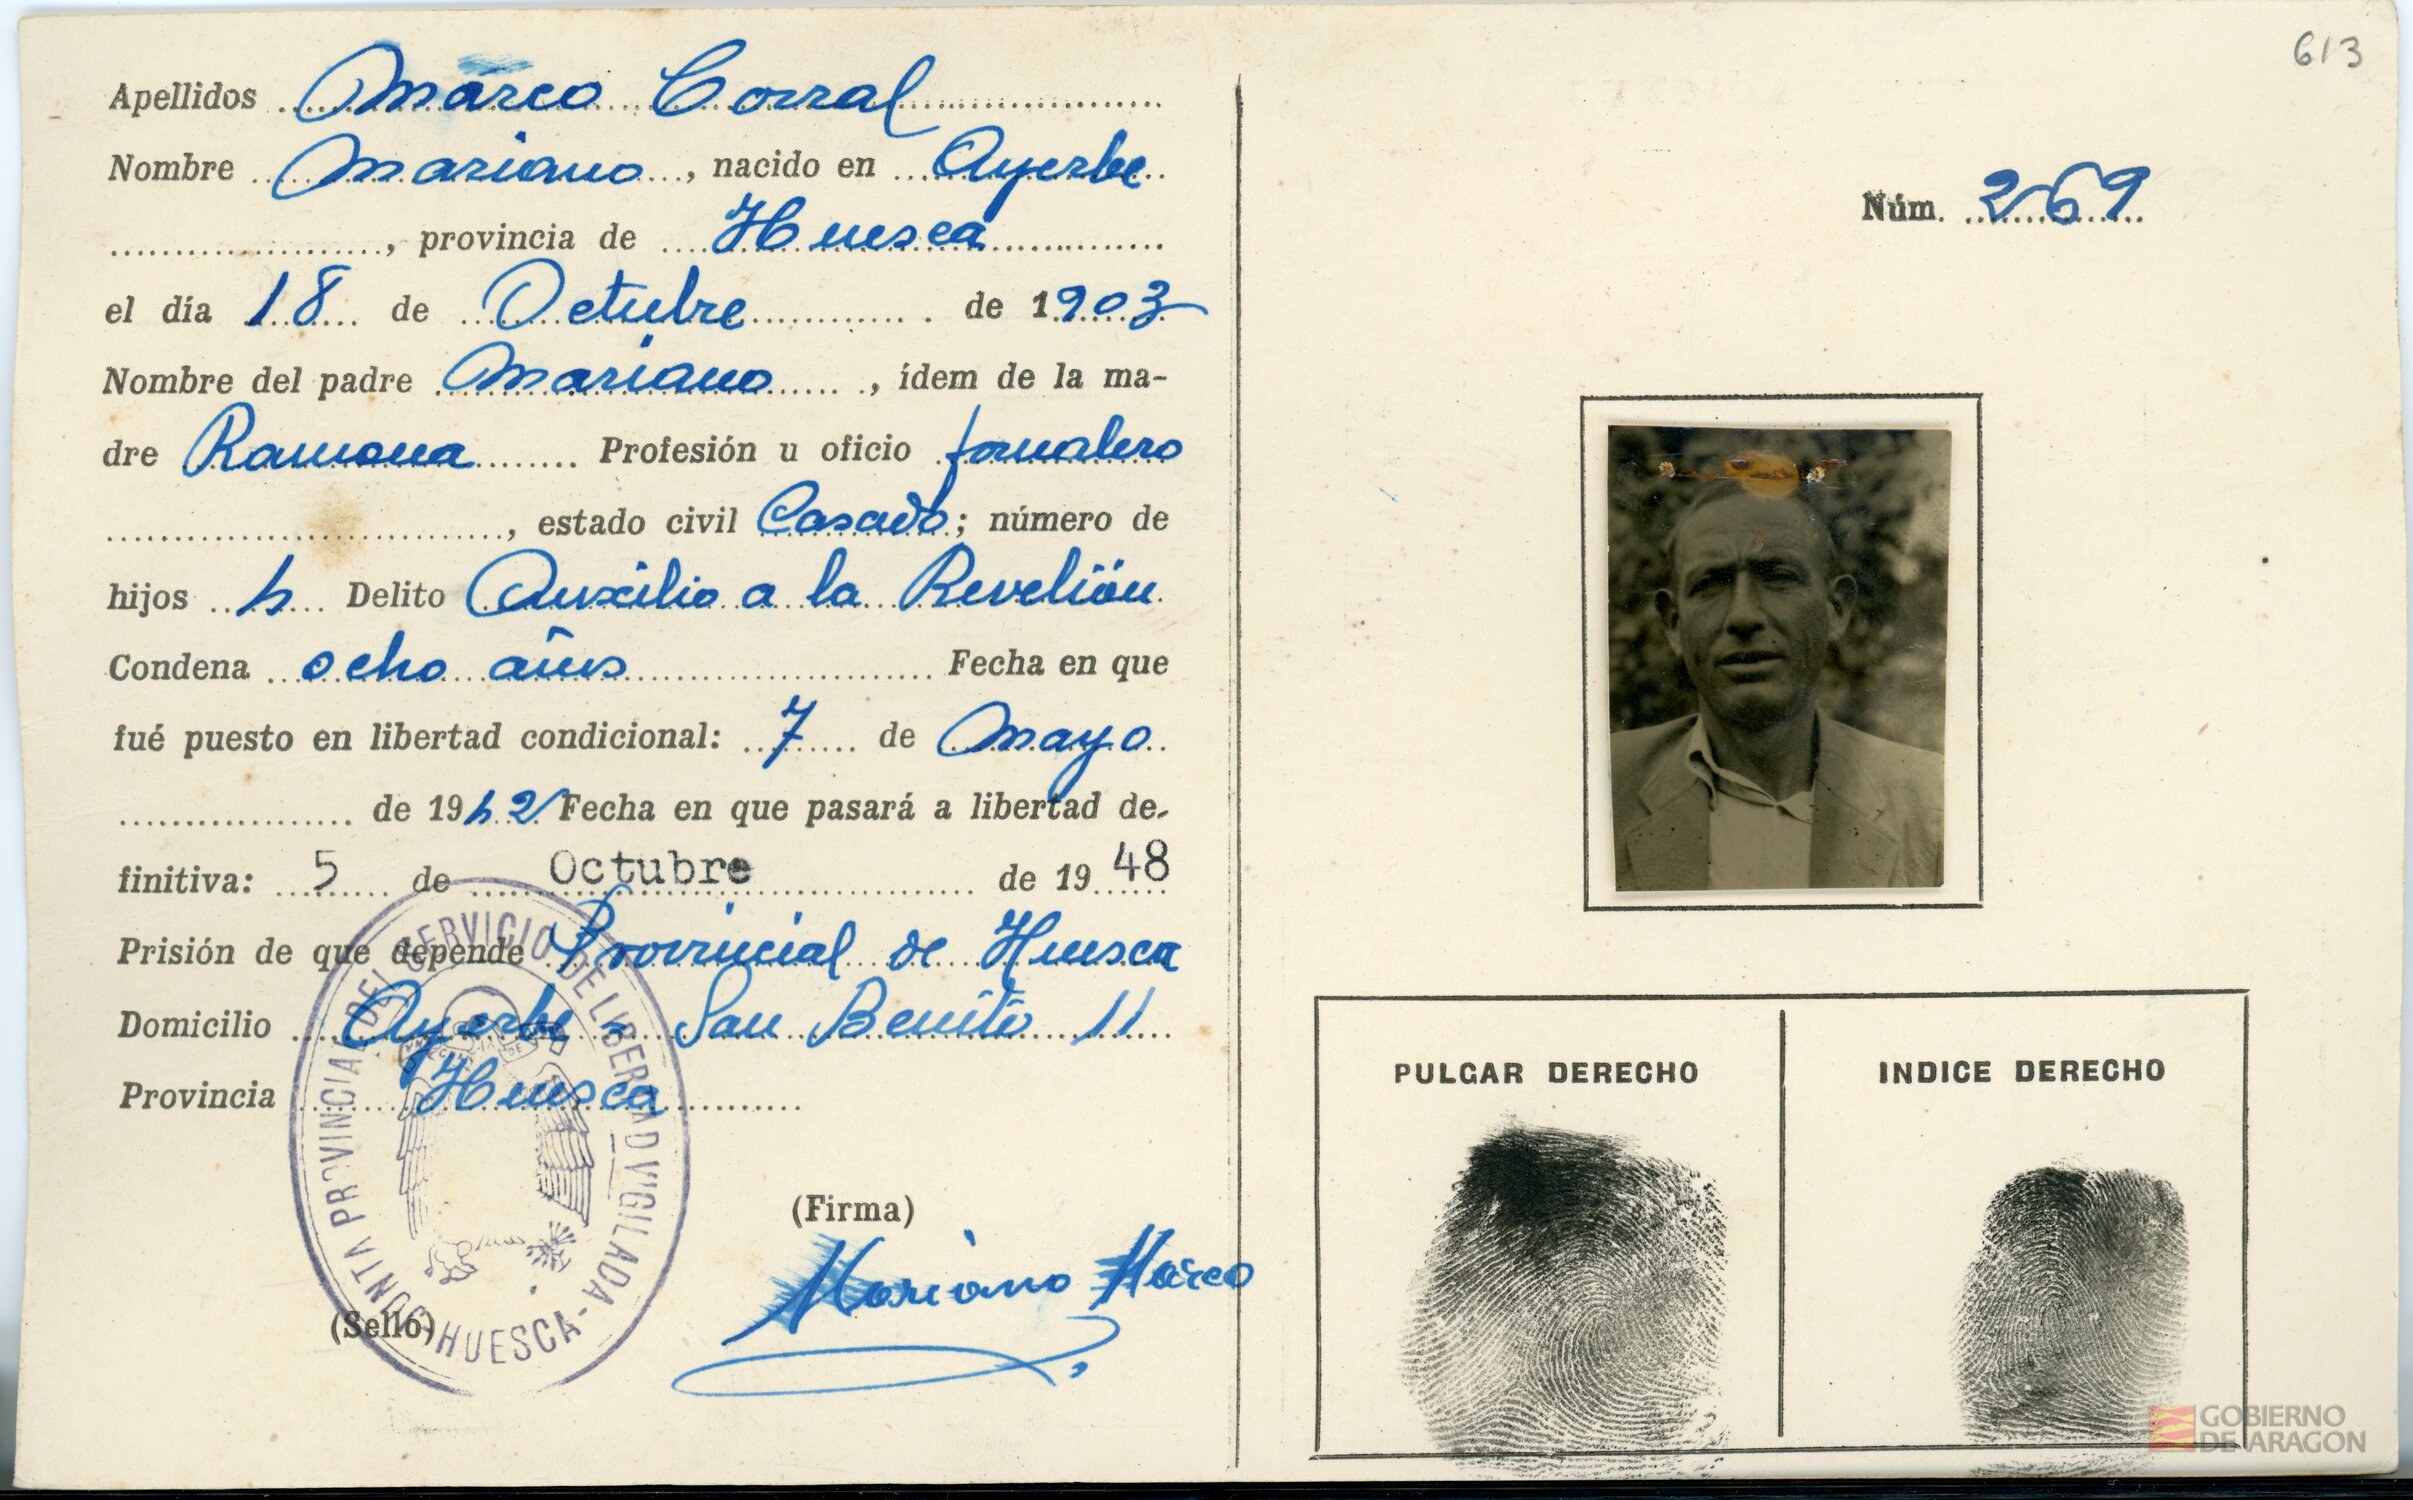 613
Apellidos Marco Corral
Nombre Mariano, nacido en Ayerbe
, provincia de Huesca
el día 18 de Octubre de 1903
Nombre del padre Mariano, ídem de la ma-
dre Ramona Profesión u oficio Jornalero
, estado civil Casado; número de
hijos 4 Delito Auxilio a la Revelión
Condena ocho años Fecha en que
fué puesto en libertad condicional: 7 de Mayo
de 1942 Fecha en que pasará a libertad de-
finitiva: 5 de Octubre de 1948
Prisión de que depende Provincial de Huesca
Domicilio Ayerbe - San Benito 11
Provincia Huesca
(Firma)
Mariano Marco
(Sello)
JUNTA PROVINCIAL DEL SERVICIO DE LIBERTAD VIGILADA - HUESCA -
Núm. 269
PULGAR DERECHO
INDICE DERECHO
GOBIERNO
DE ARAGON